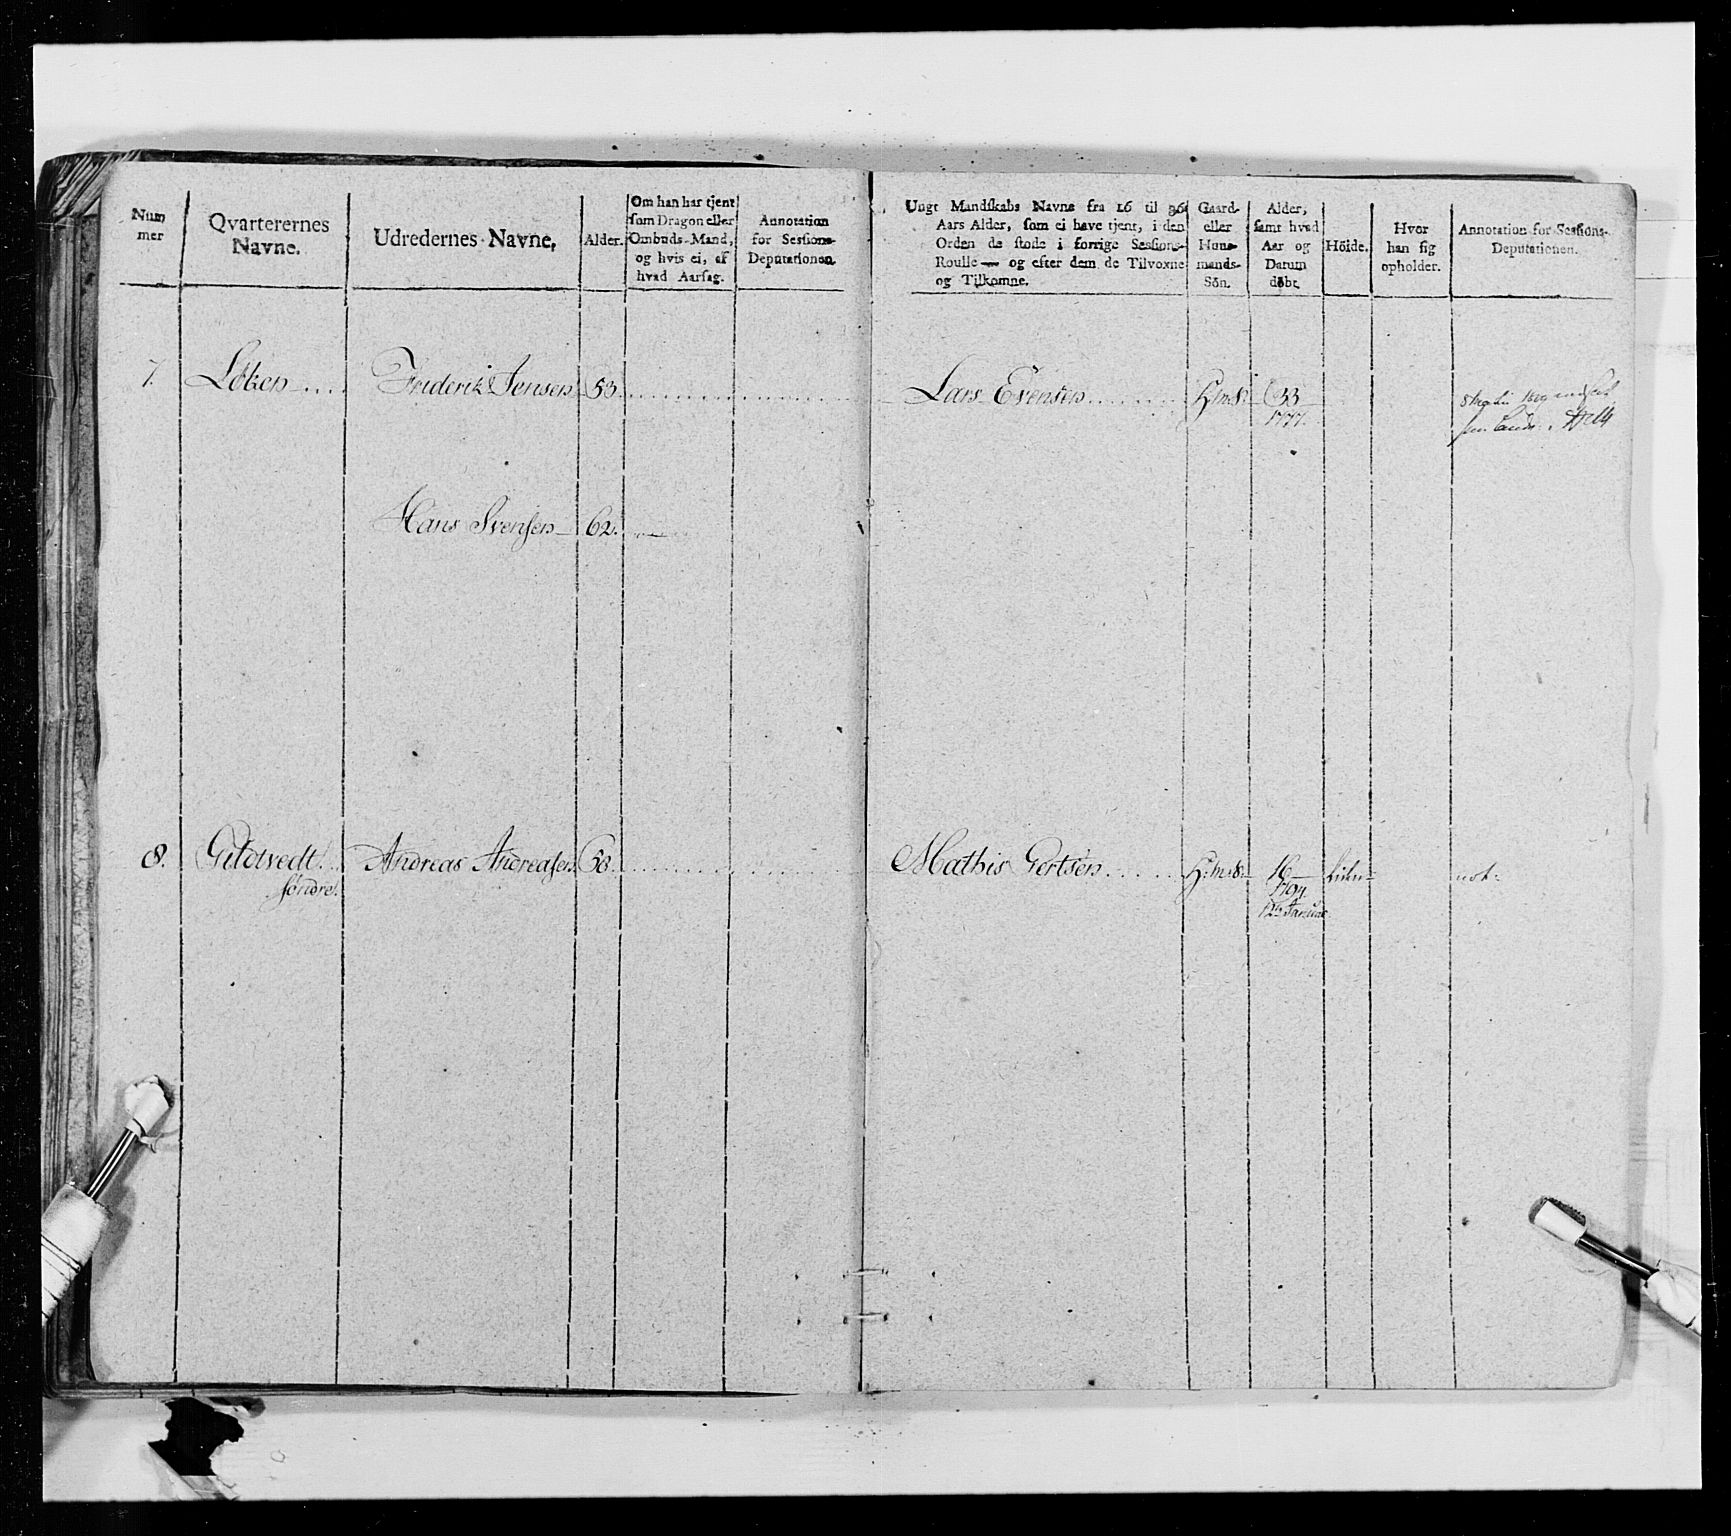 Num
mer
Qvarterernes
Navne.
Udredernes Navne,
Alder.
Om han har tjent
som Dragon eller
Ombuds-Mand,
og hvis ei, af
hvad Aarsag.
Annotation
for Sessions-
Deputationen
Ungt Mandskabs Navne fra 16 til 36
Aars Alder, som ei have tjent, i den
Orden de stode i forrige Sessions-
Roulle — og efter dem de Tilvoxne
og Tilkomne.
Gaard-
eller
Huus-
mands-
Sön.
Alder,
samt hvad
Aar og
Datum
döbt.
Höide.
Hvor
han sig
opholder.
Annotation for Sessions-
Deputationen.
7. Løken Friderik Jensen 53 Lars Evensen H:m:S: 33
1777.
Hans Svensen 62.
8. Gildtvedt Andreas Andreasen 58 Mathis Gertsen H:m:S: 16 Liden not.
søndre. 1794
12te Januar